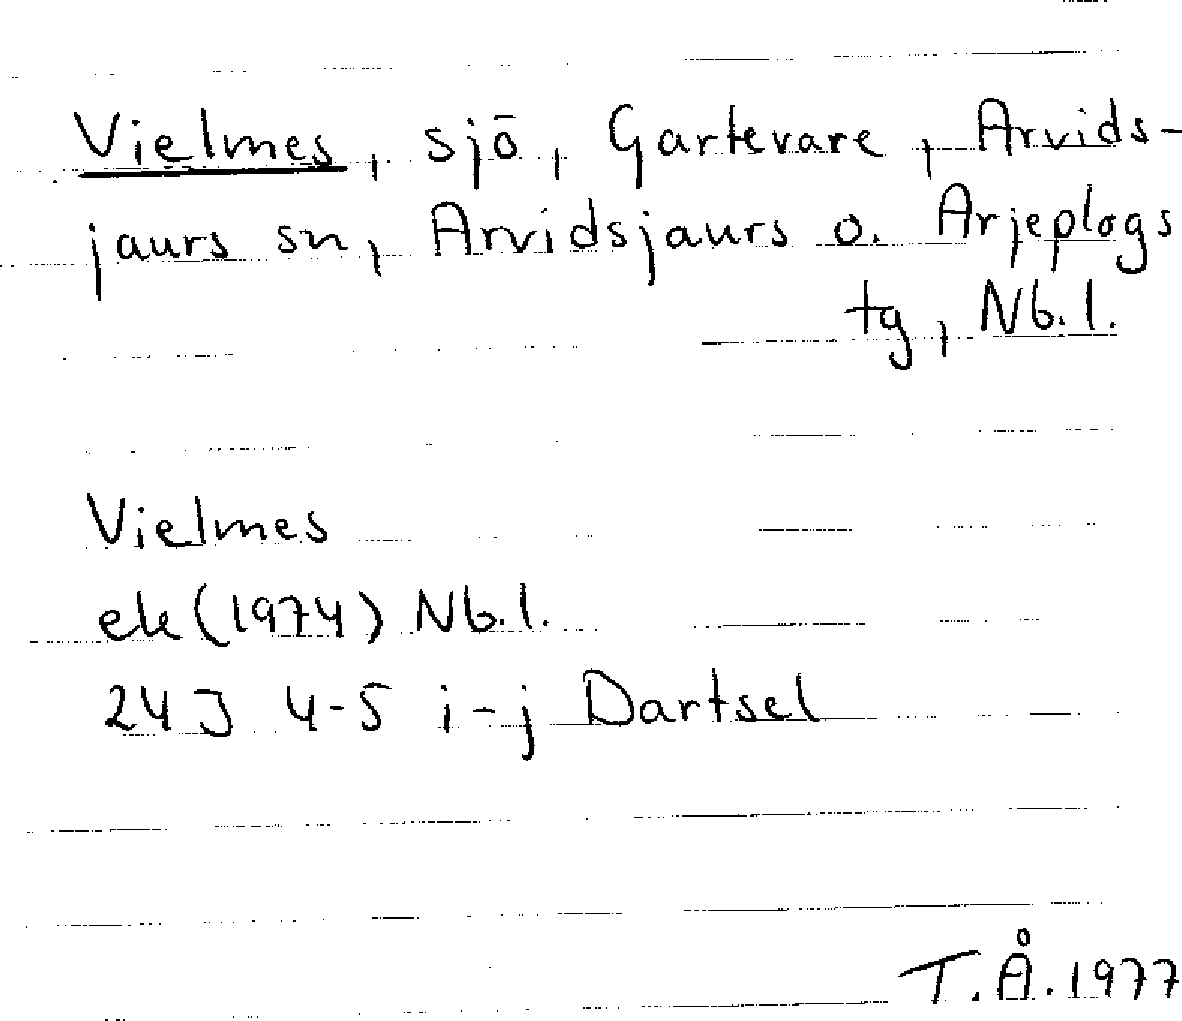 Vielmes, sjö, Gartevare, Arvids-
jaurs sn, Arvidsjaurs o. Arjeplogs
tg, Nb.l.
Vielmes
ek (1974) Nb.l.
24J 4-5 i-j Dartsel
T.Å. 1977